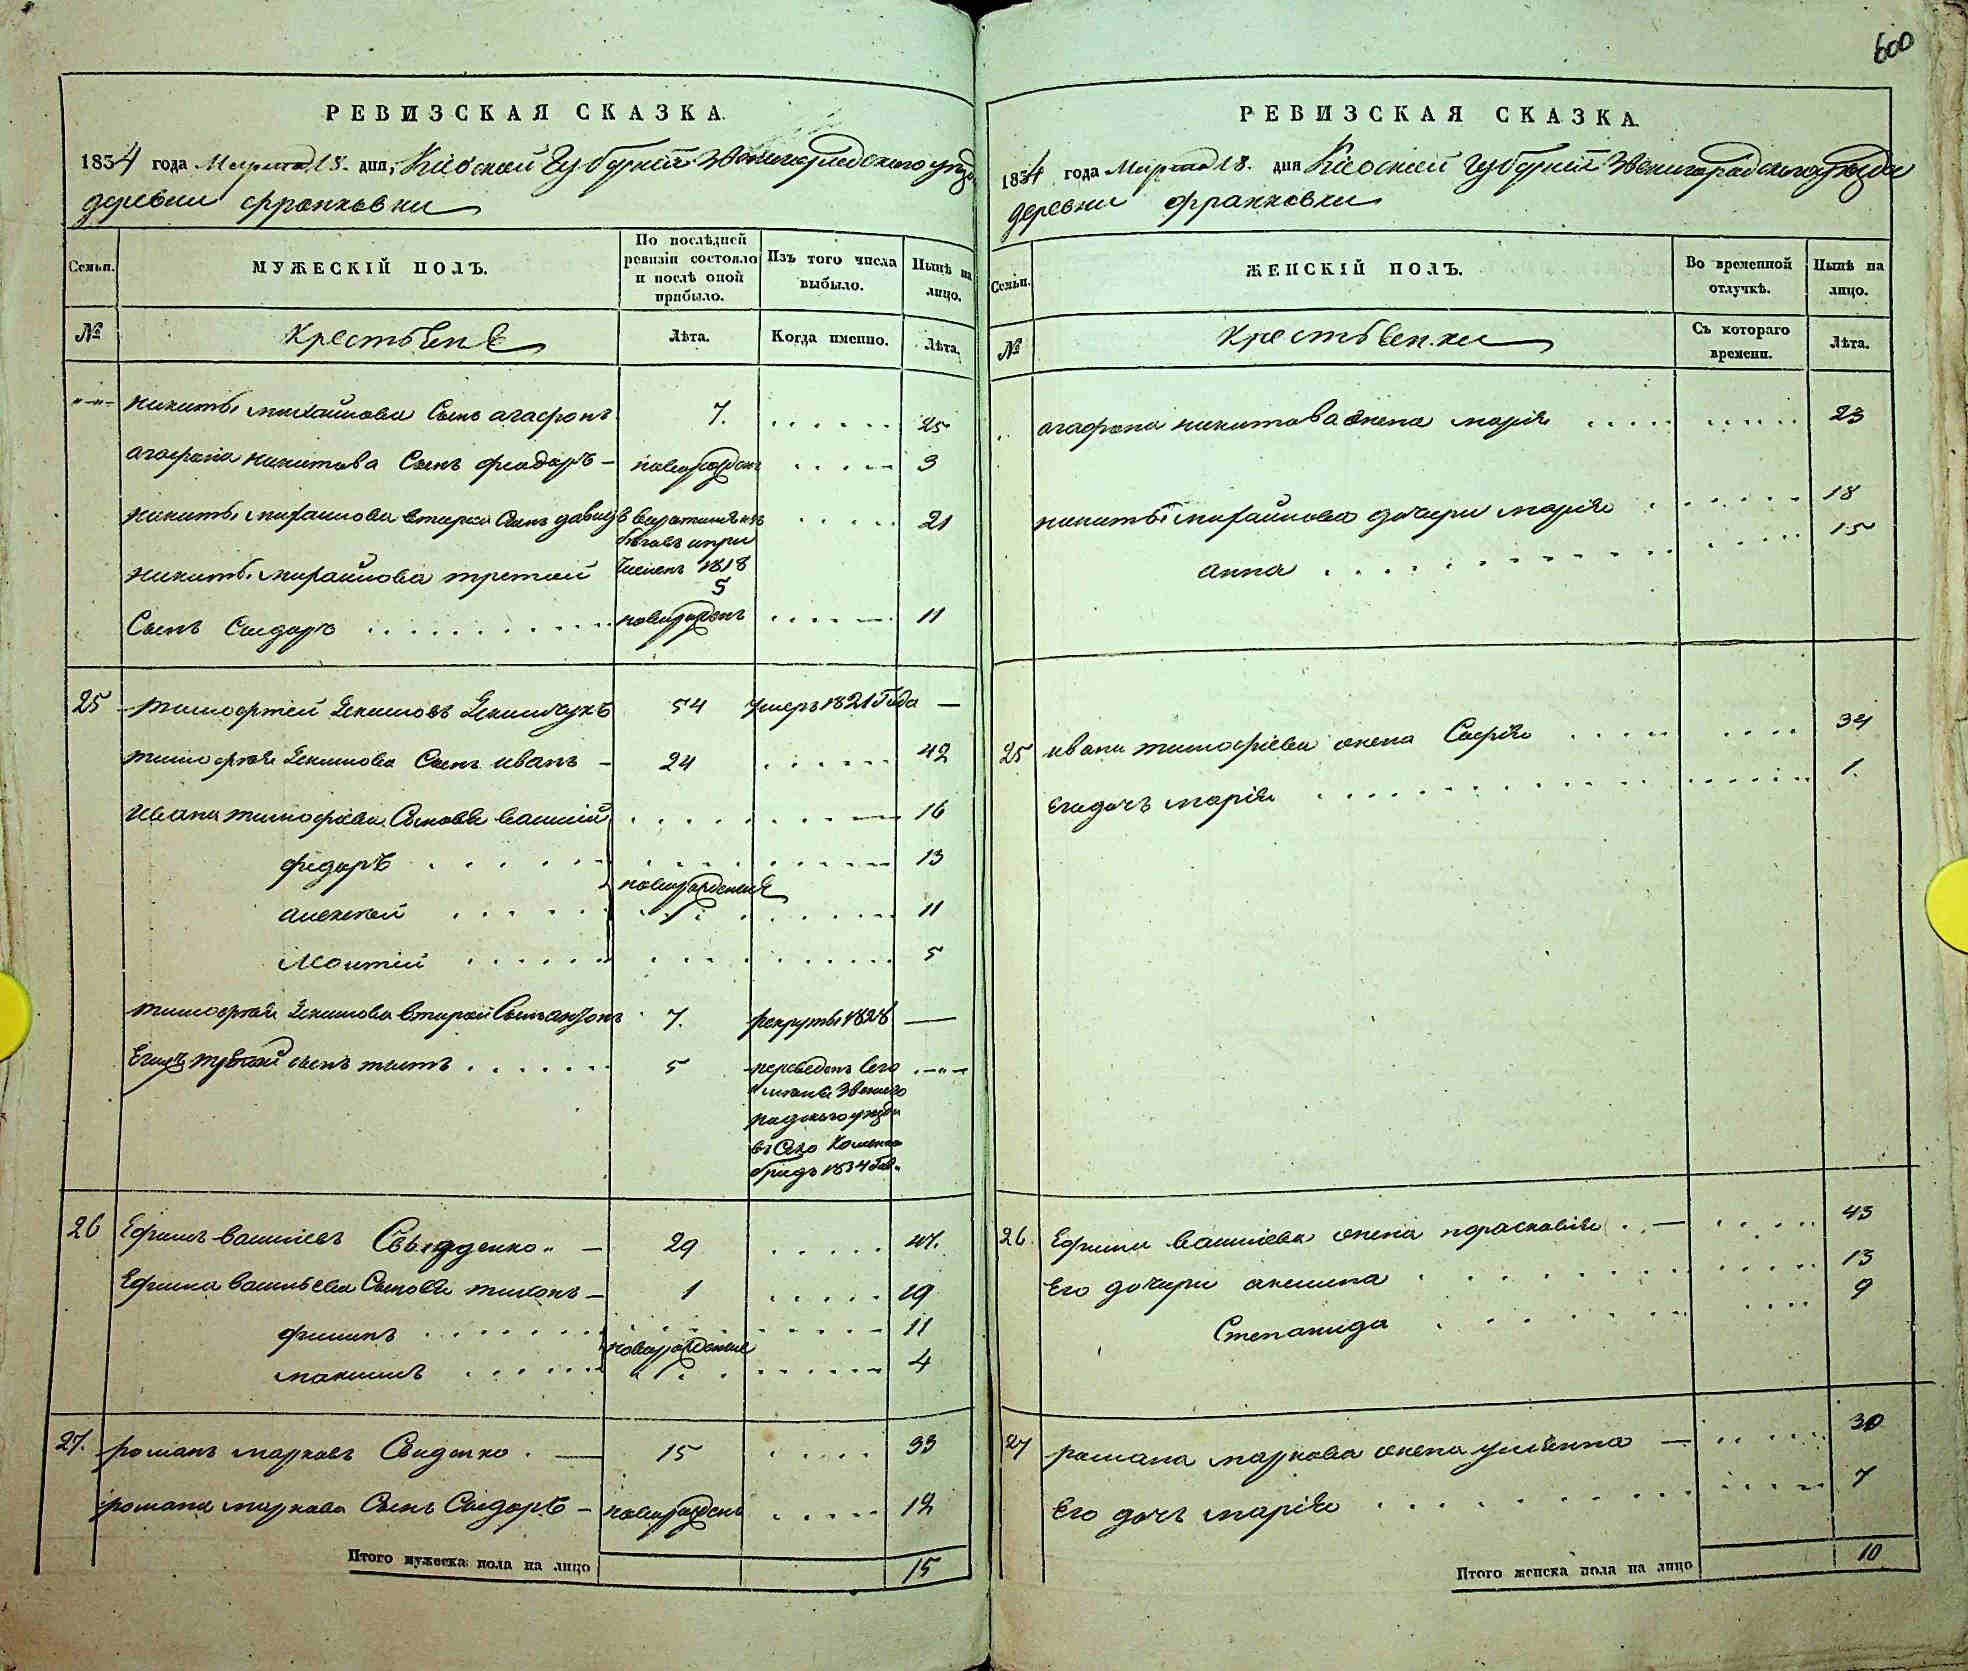 600
РЕВИЗСКАЯ СКАЗКА.
1834 года Марта 18. дня, Кіевской Губерніи Звенигородского уезда
деревни Франковки
Семьи.
МУЖЕСКІЙ ПОЛЪ.
По послѣдней ревизіи состояло и послѣ оной прибыло.
Изъ того числа выбыло.
Нынѣ на лицо.
№
Крестьяне
Лѣта.
Когда именно.
Лѣта.
никиты михайлова Сынъ агафонъ 7. 25
агафона никитова Сынъ феодоръ новорожденъ 3
никиты михайлова второй Сынъ давидъ 21
1818
5
никиты михайлова третей
Сынъ Сидоръ новорожденъ 11
25 тимофей Якимовъ Якимчукъ 54 умеръ 1821 Года —
тимофея Якимова Сынъ иванъ 24 42
ивана тимофеева Сыновья василій 16
федоръ 13
новорожденные
алексей 11
Моитей 5
тимофея Якимова второй Сынъ 7. рекруты 1828 —
Его третий сынъ титъ 5 переведенъ
в Село
1834
26 Ефимъ василіевъ 29 47.
Ефима васильева Сыновья тихонъ 1 19
филипъ 11
новорожденные
максимъ 4
27. романъ марковъ Свиденко 15 33
романа маркова Сынъ Сидоръ новорожденъ 12
Итого мужеска пола на лицо 15
РЕВИЗСКАЯ СКАЗКА.
1834 года Марта 18. дня Кіевской Губерніи Звенигородского уезда
деревни Франковки
Семьи.
ЖЕНСКІЙ ПОЛЪ.
Во временной отлучкѣ.
Нынѣ на лицо.
№
Крестьянки
Съ котораго времени.
Лѣта.
агафона никитова жена марія 23
никиты михайлова дочери марія 18
анна 15
25 ивана тимофіева жена Софія 34
Его дочь марія 1.
26. Ефима василіева жена параскавія 43
Его дочери акилина 13
Степанида 9
27 романа маркова жена уліянна 30
Его дочь марія 7
Итого женска пола на лицо 10